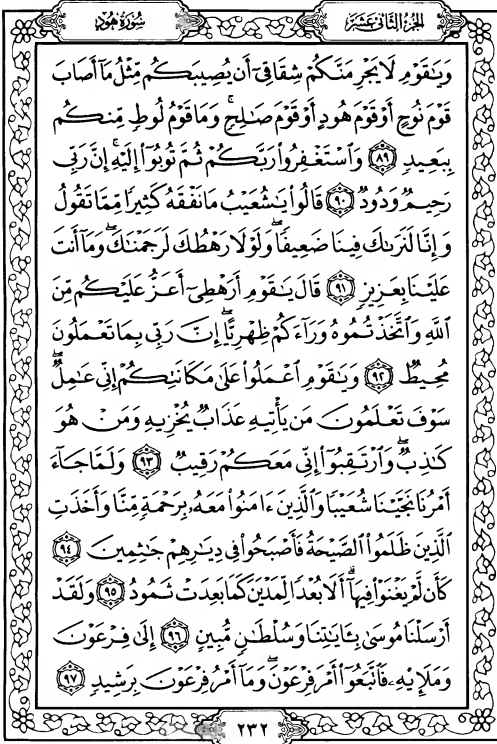 الجزء الثاني عشر سورة هود
وَيَٰقَوْمِ لَا يَجْرِمَنَّكُمْ شِقَاقِىٓ أَن يُصِيبَكُم مِّثْلُ مَآ أَصَابَ
قَوْمَ نُوحٍ أَوْ قَوْمَ هُودٍ أَوْ قَوْمَ صَٰلِحٍۚ وَمَا قَوْمُ لُوطٍ مِّنكُم
بِبَعِيدٍ ۝٨٩ وَٱسْتَغْفِرُوا۟ رَبَّكُمْ ثُمَّ تُوبُوٓا۟ إِلَيْهِۚ إِنَّ رَبِّى
رَحِيمٌ وَدُودٌ ۝٩٠ قَالُوا۟ يَٰشُعَيْبُ مَا نَفْقَهُ كَثِيرًا مِّمَّا تَقُولُ
وَإِنَّا لَنَرَىٰكَ فِينَا ضَعِيفًاۖ وَلَوْلَا رَهْطُكَ لَرَجَمْنَٰكَۖ وَمَآ أَنتَ
عَلَيْنَا بِعَزِيزٍ ۝٩١ قَالَ يَٰقَوْمِ أَرَهْطِىٓ أَعَزُّ عَلَيْكُم مِّنَ
ٱللَّهِ وَٱتَّخَذْتُمُوهُ وَرَآءَكُمْ ظِهْرِيًّاۖ إِنَّ رَبِّى بِمَا تَعْمَلُونَ
مُحِيطٌ ۝٩٢ وَيَٰقَوْمِ ٱعْمَلُوا۟ عَلَىٰ مَكَانَتِكُمْ إِنِّى عَٰمِلٌۖ
سَوْفَ تَعْلَمُونَ مَن يَأْتِيهِ عَذَابٌ يُخْزِيهِ وَمَنْ هُوَ
كَٰذِبٌۖ وَٱرْتَقِبُوٓا۟ إِنِّى مَعَكُمْ رَقِيبٌ ۝٩٣ وَلَمَّا جَآءَ
أَمْرُنَا نَجَّيْنَا شُعَيْبًا وَٱلَّذِينَ ءَامَنُوا۟ مَعَهُۥ بِرَحْمَةٍ مِّنَّا وَأَخَذَتِ
ٱلَّذِينَ ظَلَمُوا۟ ٱلصَّيْحَةُ فَأَصْبَحُوا۟ فِى دِيَٰرِهِمْ جَٰثِمِينَ ۝٩٤
كَأَن لَّمْ يَغْنَوْا۟ فِيهَآۗ أَلَا بُعْدًا لِّمَدْيَنَ كَمَا بَعِدَتْ ثَمُودُ ۝٩٥ وَلَقَدْ
أَرْسَلْنَا مُوسَىٰ بِـَٔايَٰتِنَا وَسُلْطَٰنٍ مُّبِينٍ ۝٩٦ إِلَىٰ فِرْعَوْنَ
وَمَلَإِي۟هِۦ فَٱتَّبَعُوٓا۟ أَمْرَ فِرْعَوْنَۖ وَمَآ أَمْرُ فِرْعَوْنَ بِرَشِيدٍ ۝٩٧
٢٣٢